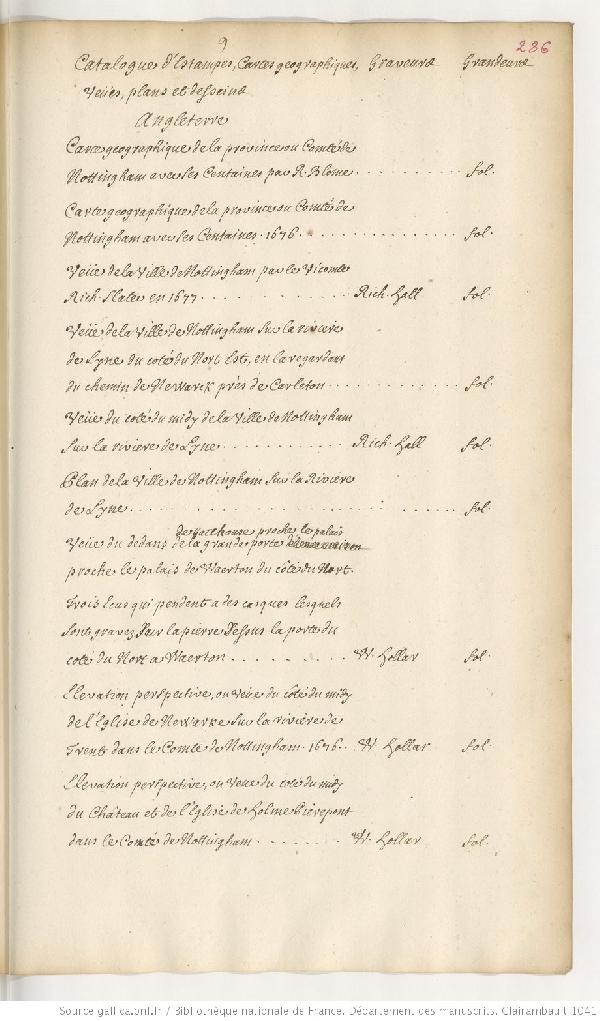 9
236
Catalogue d'Estampes, Cartes geographiques, Graveurs Grandeurs
Veües, plans et desseins
Angleterre
Carte geographique de la province ou Comté de
Nottingham avec les Centaines par R. Blome . . . . . . . . . . fol.
Carte geographique de la province ou Comté de
Nottingham avec les Centaines. 1676 . . . . . . . . . . . . . . fol.
Veüe de la Ville de Nottingham par le Vicomte
Rich. Slate en 1677 . . . . . . . . . . . Rich. Hall fol.
Veüe de la Ville de Nottingham sur la riviere
de Lyne du coté du Nort Est, en la regardant
du chemin de Newarck près de Carleton . . . . . . . . . . . . fol.
Veüe du coté du midy de la Ville de Nottingham
sur la riviere de Lyne . . . . . . . . . . . Rich. Hall fol.
Plan de la Ville de Nottingham sur la Riviere
de Lyne . . . . . . . . . . . . . . . . . . . . . . . . . fol.
proche le palais
Veüe du dedans de la grande porte
proche le palais de Waerton du côté du Nort.
Trois Ecus qui pendent a des casques lesquels
sont gravez sur la pierre dessus la porte du
coté du Nort a Waerton . . . . . . . . . W. Hollar fol.
Elevation perspective, ou veüe du côté du midy
de l'Eglise de Newarke sur la riviere de
Trente dans le Comté de Nottingham. 1676 . . W. Hollar fol.
Elevation perspective, ou Veüe du coté du midy
du Château et de l'Eglise de Holme Pierepont
dans le Comté de Nottingham . . . . . . . . W. Hollar fol.
Source gallica.bnf.fr / Bibliothèque nationale de France. Département des manuscrits. Clairambault 1041